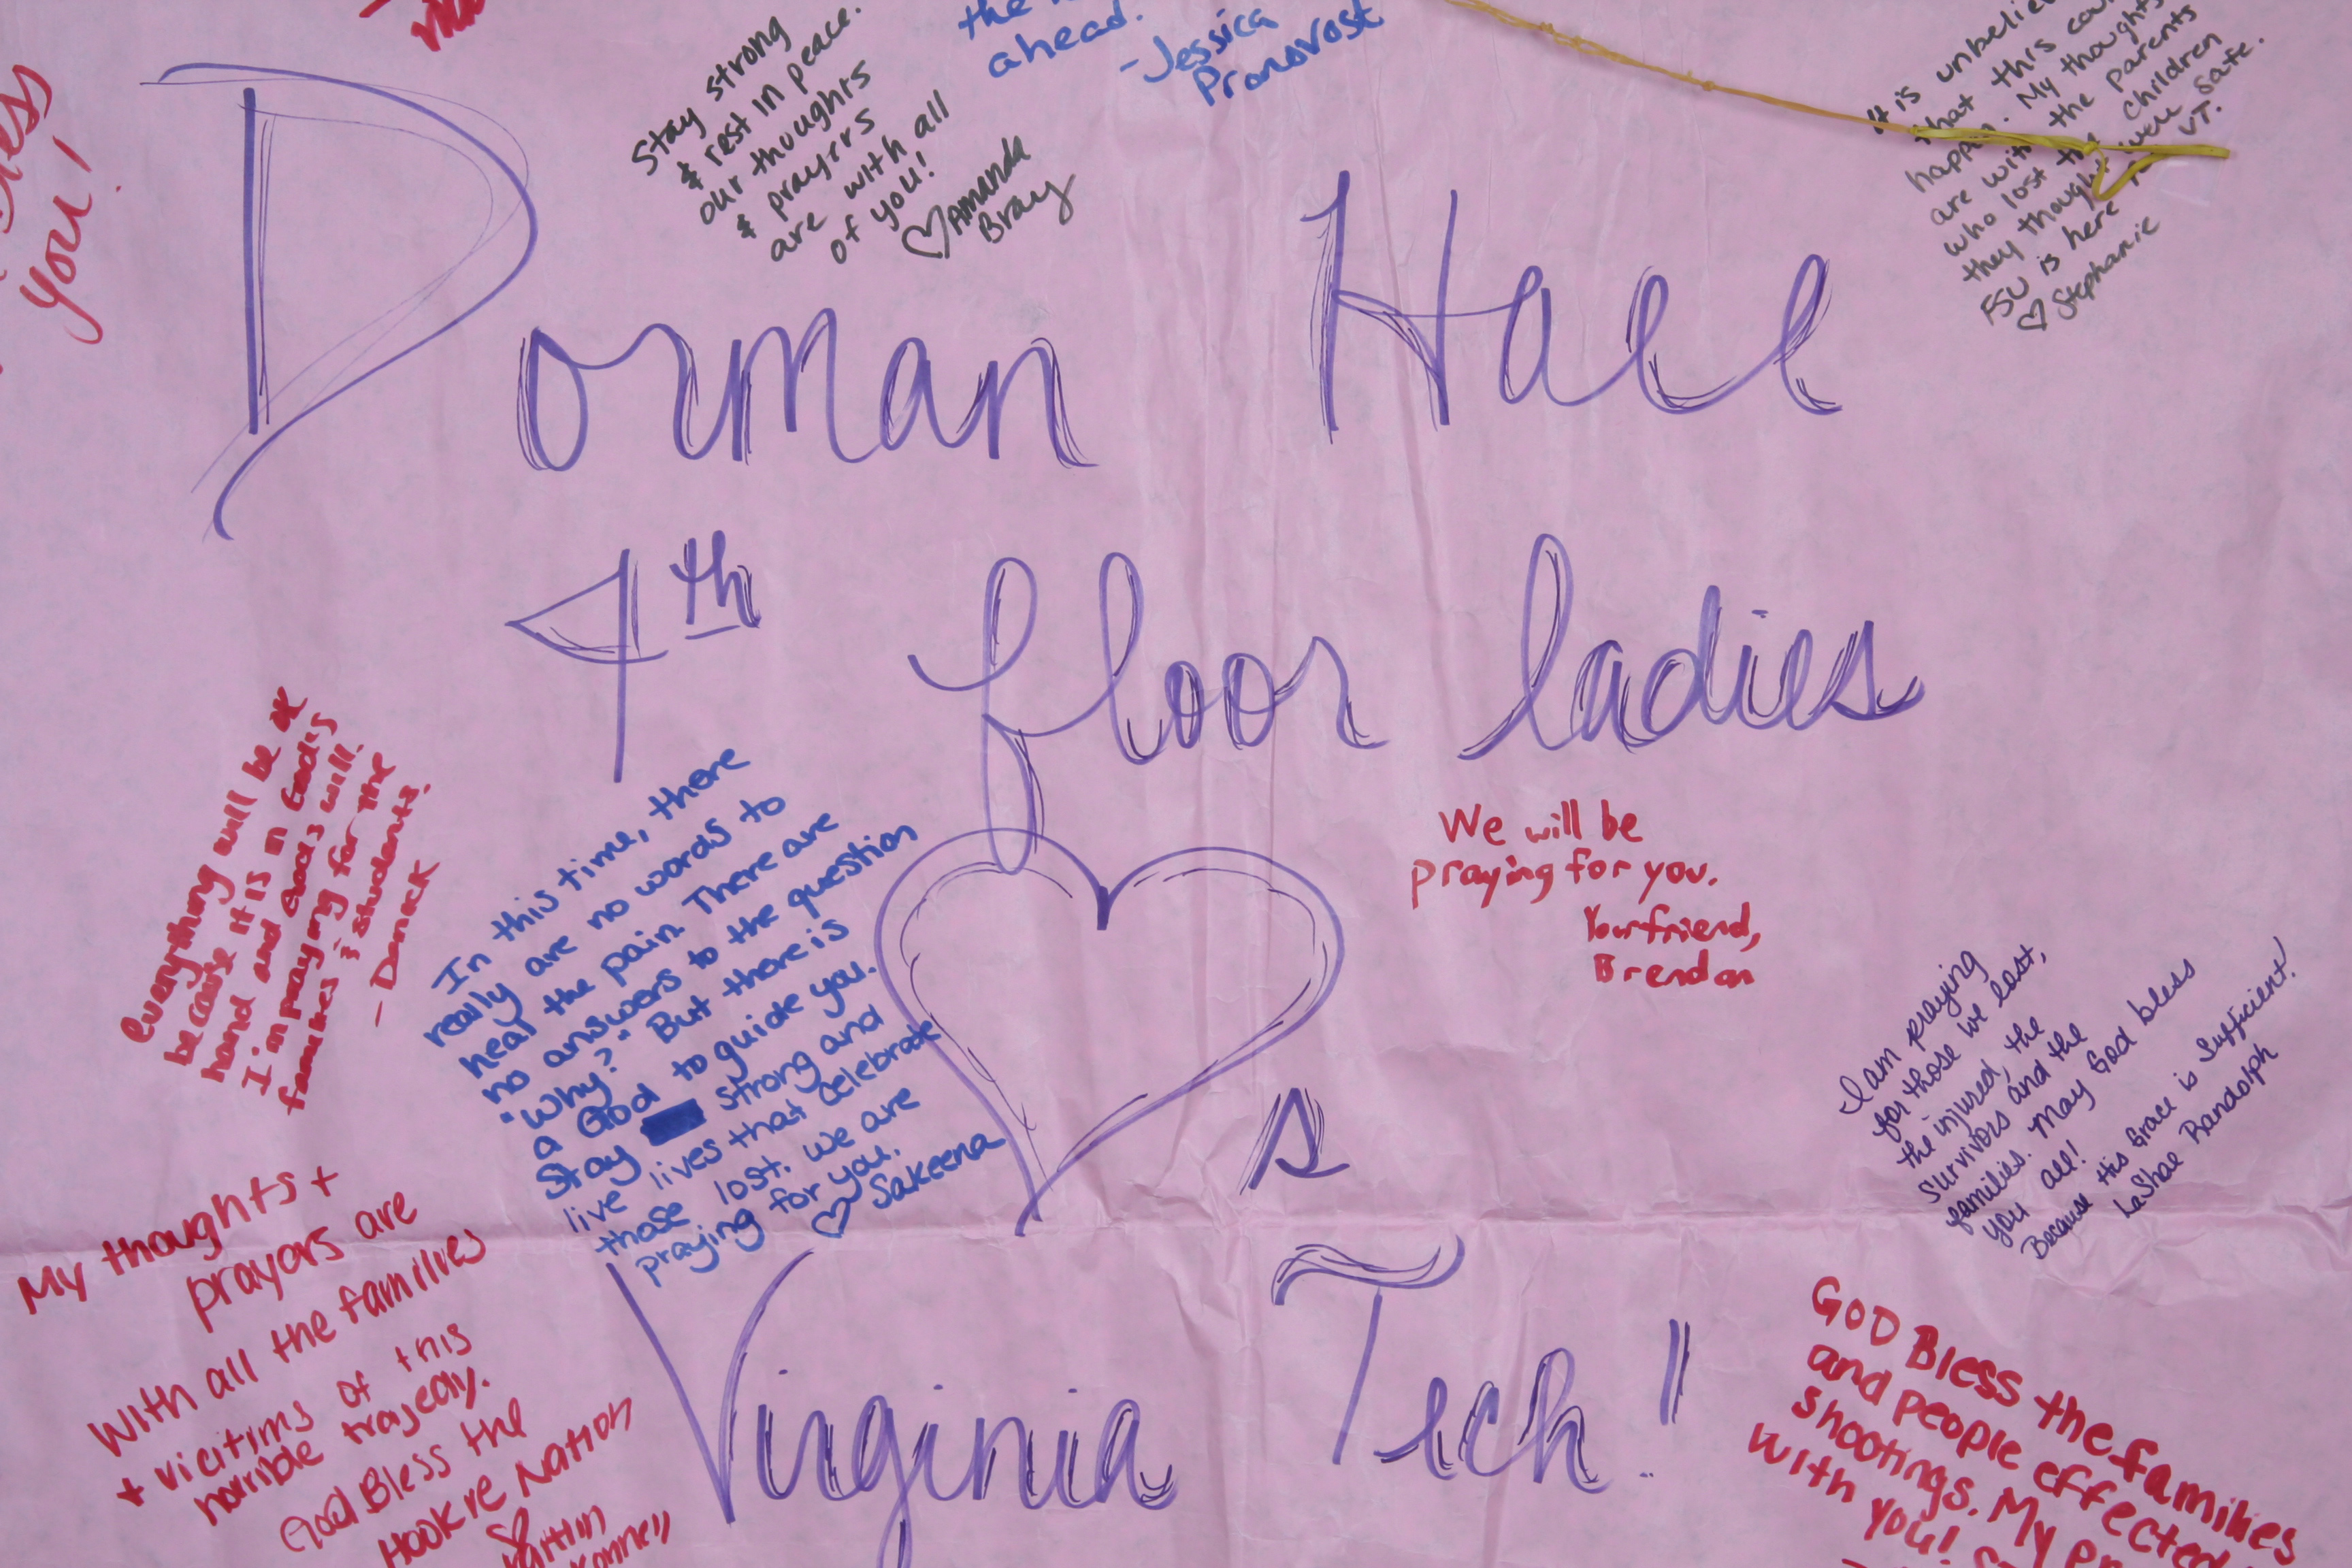 you!
Stay strong
& rest in peace.
our thoughts
& prayrrs
are with all
of you!
♡ Amanda
Bray
the
ahead.
-Jessica
Pronovost
It is
that this
happen. My thoughts
are with the parents
who lost the children
they thought were safe.
FSU is here VT.
♡ Stephanie
Dorman Hall
4th floor ladies
♡s
Virginia Tech!
Everything will be ok
because it is in God's
hand and God's will.
I'm praying for the
families & students.
- Dereck
In this time, there
really are no words to
heal the pain. There are
no answers to the question
"Why?" But there is
a God to guide you.
Stay strong and
live lives that celebrate
those lost. we are
praying for you.
♡ Sakeena
We will be
praying for you.
Your friend,
Brendan
I am praying
for those we lost,
the injured, the
survivors and the
families. May God bless
you all!
Because His Grace is Sufficient!
LaShae Randolph
My thoughts +
prayors are
with all the families
+ vicitims of this
horrible tragedy.
God Bless the
Hookre Nation
GOD Bless the families
and people effected
shootings. My
with you!